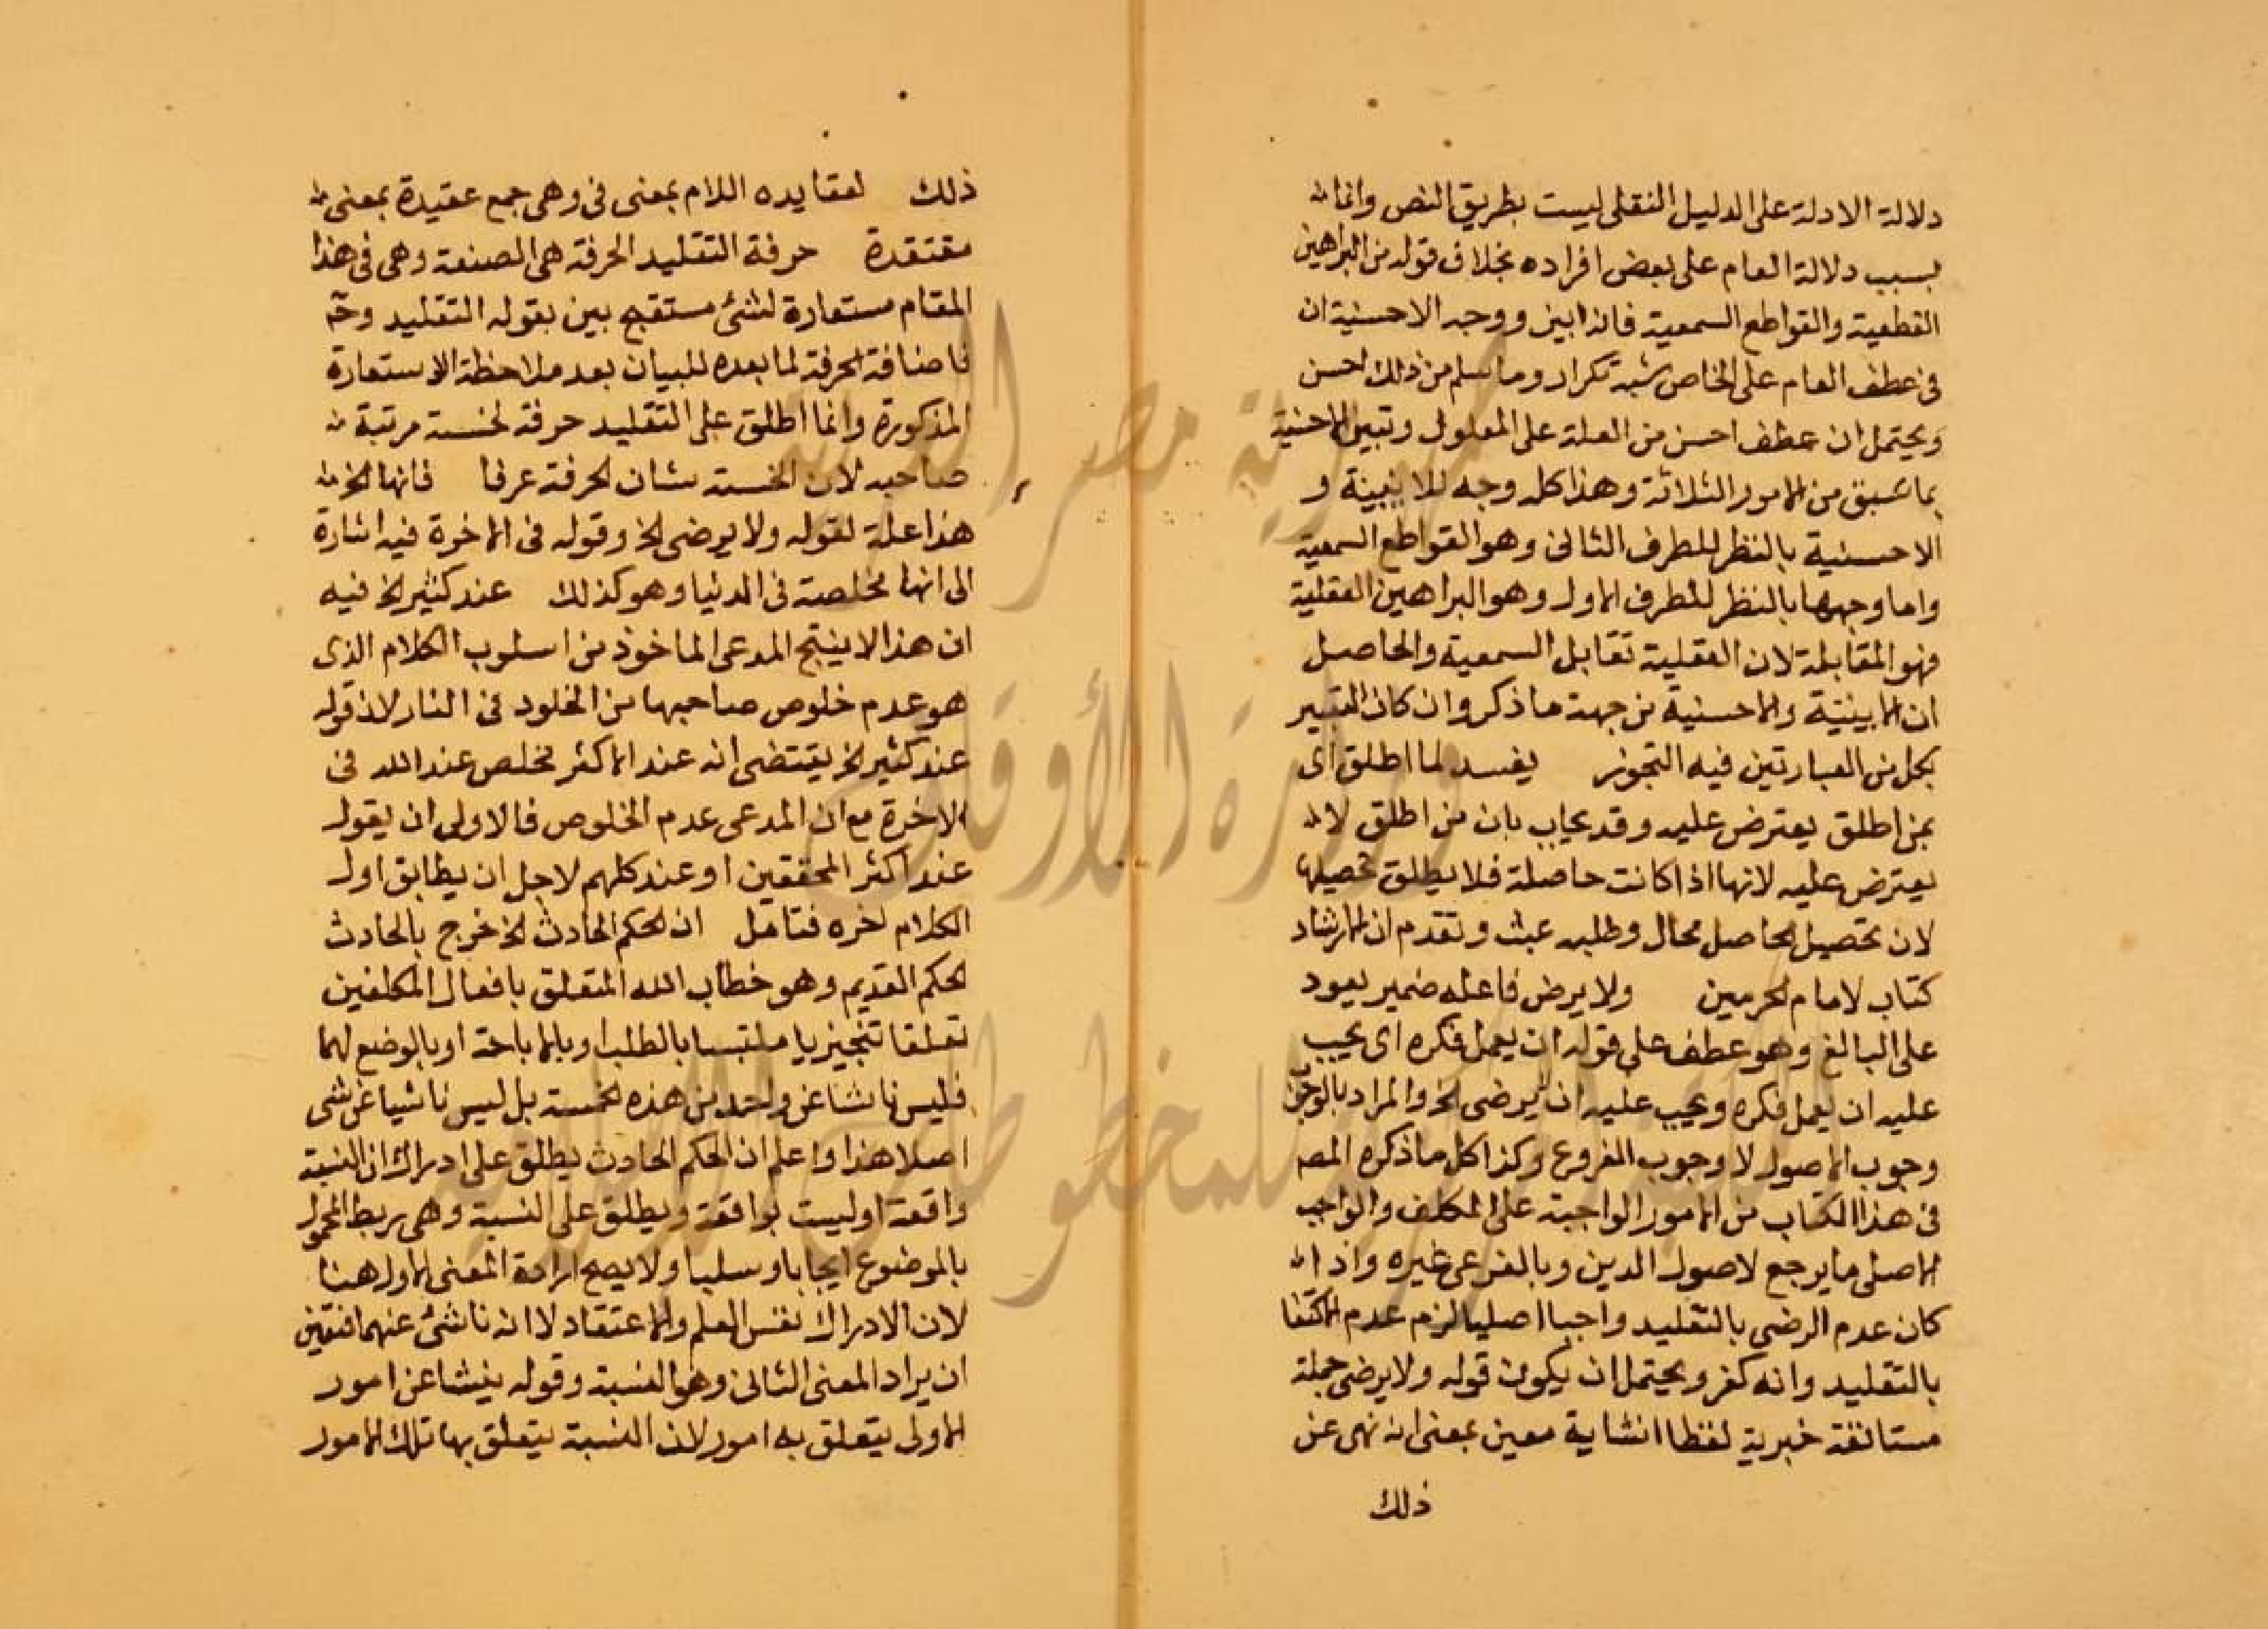 دلالة الادلة على الدليل النقلى ليست بطريق النص وانما
بسبب دلالة العام على بعض افراده بخلاف قوله من البراهين
القطعية والقواطع السمعية فانه ابين ووجه الاحسنية ان
فى عطف العام على الخاص شبه تكرار وما سلم من ذلك احسن
ويحتمل ان عطف احسن من العلة على المعلول وتبين الاحسنية
بما سبق من الامور الثلاثة وهذا كله وجه للابينية و
الاحسنية بالنظر للطرف الثانى وهو القواطع السمعية
واما وجهها بالنظر للطرف الاول وهو البراهين العقلية
فهو المقابلة لان العقلية تقابل السمعية والحاصل
ان الابينية والاحسنية من جهة ما ذكر وان كان التعبير
بكل من العبارتين فيه التجوز يفسد لما اطلق اى
بمن اطلق يعترض عليه وقد يجاب بان من اطلق لا
يعترض عليه لانها اذا كانت حاصلة فلا يطلق تحصيلها
لان تحصيل الحاصل محال وطلبه عبث وتقدم ان الارشاد
كتاب لامام الحرمين ولا يرض فاعله ضمير يعود
على البالغ وهو عطف على قوله ان يعمل فكره اى يجب
عليه ان يعمل فكره ويجب عليه ان لا يرضى الخ والمراد بالوجوب
وجوب الاصول لا وجوب الفروع وكذا كل ما ذكره المص
فى هذا الكتاب من الامور الواجبة على المكلف والواجب
الاصلى ما يرجع لاصول الدين وبالفرعى غيره واذا
كان عدم الرضى بالتقليد واجبا اصليا لزم عدم الاكتفا
بالتقليد وانه كفر ويحتمل ان يكون قوله ولا يرضى جملة
مستانفة خبرية لفظا انشاية معين بمعنى انه نهى عن
ذلك
ذلك لعقايده اللام بمعنى فى وهى جمع عقيدة بمعنى
معتقدة حرفة التقليد الحرفة هى الصنعة وهى فى هذا
المقام مستعارة لشئ مستقبح بين بقوله التقليد وح
فاضافة الحرفة لما بعده للبيان بعد ملاحظة الاستعارة
المذكورة وانما اطلق على التقليد حرفة لخسة مرتبة
صاحبه لان الخسة شان الحرفة عرفا فانها الخ
هذا علة لقوله ولا يرضى الخ وقوله فى الاخرة فيه اشارة
الى انها مخلصة فى الدنيا وهو كذلك عند كثير الخ فيه
ان هذا لا ينتج المدعى الماخوذ من اسلوب الكلام الذى
هو عدم خلوص صاحبها من الخلود فى النار لان قوله
عند كثير الخ يقتضى انه عند الاكثر مخلص عند الله فى
الاخرة مع ان المدعى عدم الخلوص فالاولى ان يقول
عند اكثر المحققين او عند كلهم لاجل ان يطابق اول
الكلام اخره فتامل ان الحكم الحادث الخ خرج بالحادث
الحكم القديم وهو خطاب الله المتعلق بافعال المكلفين
تعلقا تنجيزيا ملتبسا بالطلب او بالاباحة او بالوضع لهما
فليس ناشئا عن واحد من هذه الخمسة بل ليس ناشيا عن شى
اصلا هذا واعلم ان الحكم الحادث يطلق على ادراك ان النسبة
واقعة او ليست بواقعة ويطلق على النسبة وهى ربط المحمول
بالموضوع ايجابا وسلبا ولا يصح ارادة المعنى الاول هنا
لان الادراك نفس العلم والاعتقاد لا انه ناشئ عنهما فتعين
ان يراد المعنى الثانى وهو النسبة وقوله ينشا عن امور
الاولى يتعلق به امور لان النسبة يتعلق بها تلك الامور